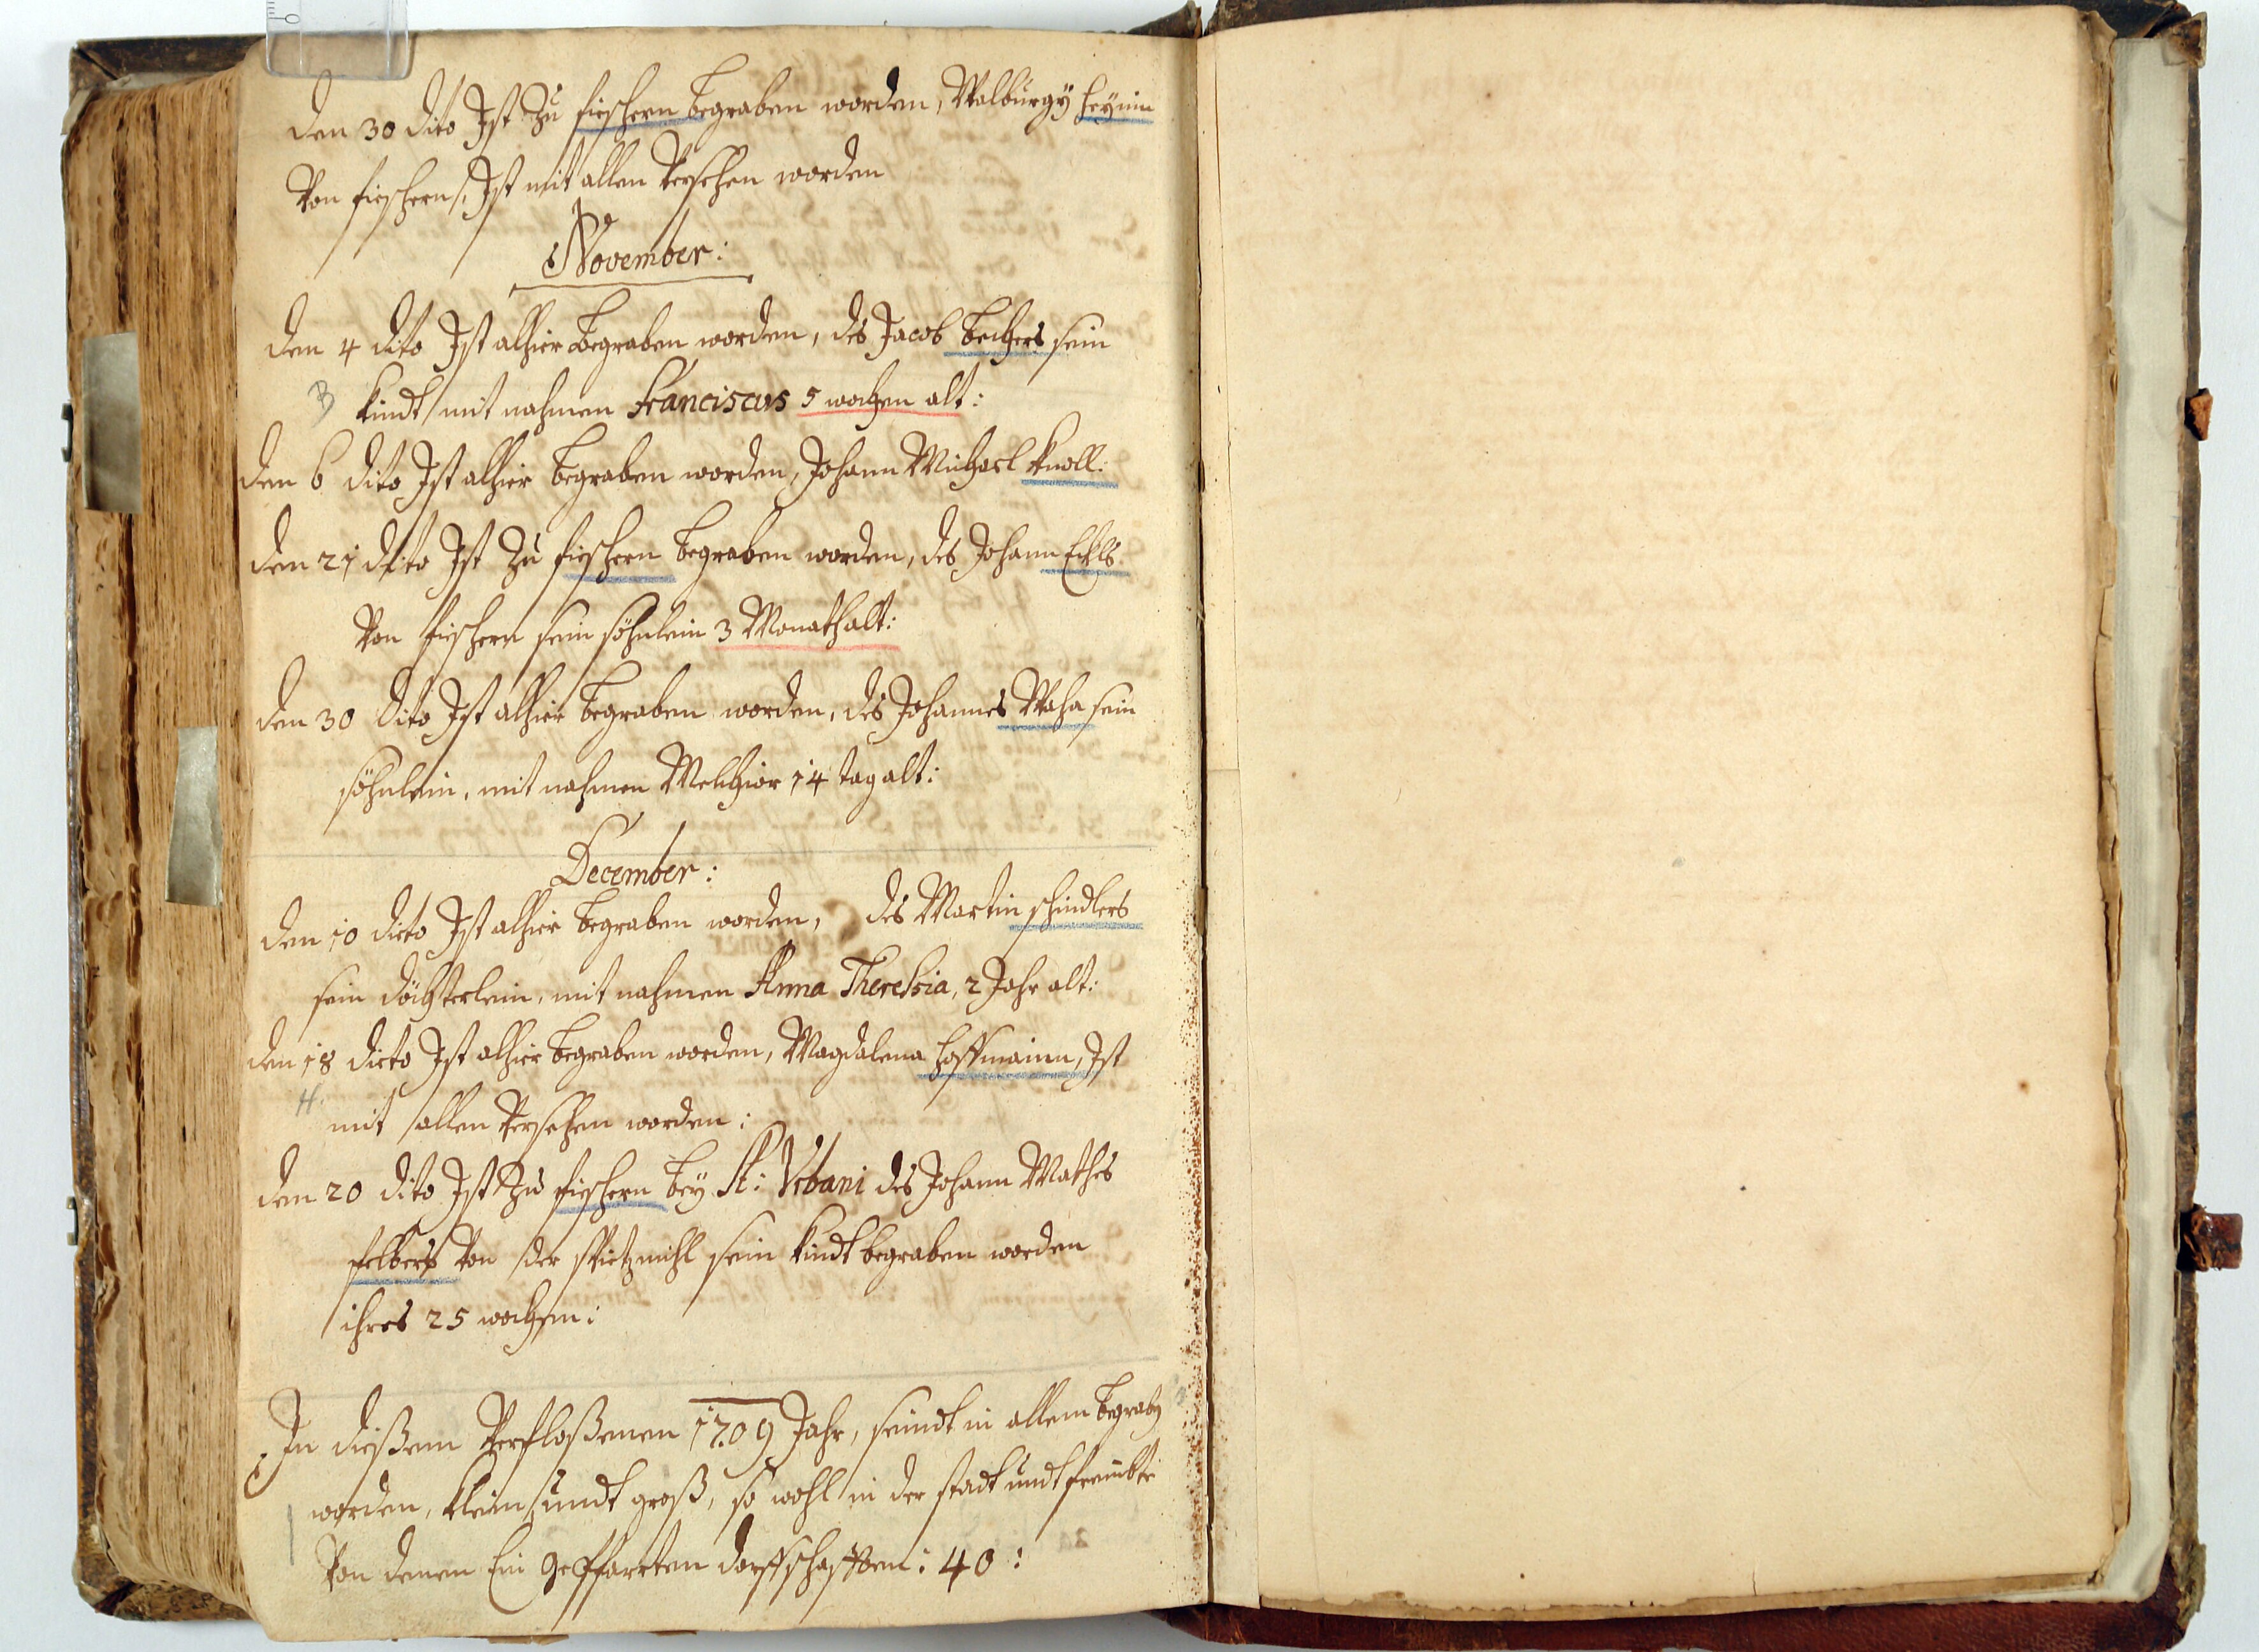 den 30 dito Ist Zu fischern begraben worden, Walburgÿ heÿnin
Von fischern, Ist mit allen Versehen worden
November:
den 4 dito Ist alhier begraben worden, des Jacob bechers sein
B kindt mit nahmen Franciscus 5 wochen alt:
den 6 dito Ist alhier begraben worden, Johann Michael knoll:
den 21 dito Ist Zu fischern begraben worden, des Johann Eckls
Von fischern sein söhnlein 3 Monath alt:
den 30 dito Ist alhier begraben worden, des Johannes Waha sein
söhnlein, mit nahmen Melchior 14 tag alt:
December:
den 10 dieto Ist alhier begraben worden, des Martin schindlers
sein döchterlein, mit nahmen Anna Theresia, 2 Jahr alt:
den 18 dieto Ist alhier begraben worden, Magdalena hoffmainn, Ist
H. mit allen Versehen worden:
den 20 dito Ist Zu fischern beÿ St: Vrbani des Johann Mathes
felbers Von der spitzmihl sein kindt begraben worden
ihres 25 wochen:
In dießem Verfloßenen 1709 Jahr, seindt in allem begraben
worden, klein undt groß, so wohl in der stadt undt
Von denen Ein gepfarrten dorffschafften: 40: